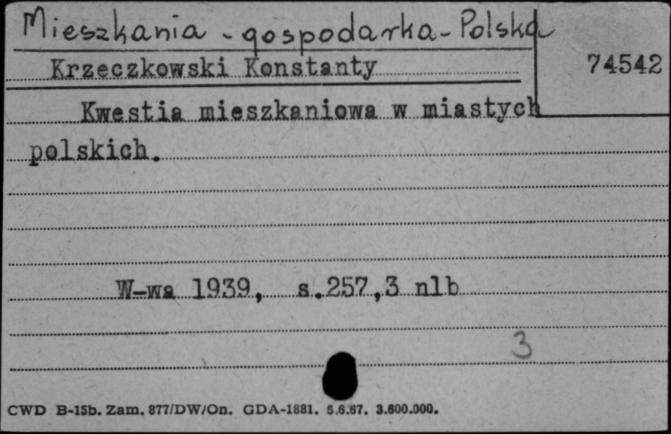 Mieszkania - gospodarka - Polska
Krzeczkowski Konstanty
74542
Kwestia mieszkaniowa w miastych
polskich.
W-wa 1939, s.257,3 nlb
3
CWD B-15b. Zam. 877/DW/On. GDA-1881. 5.6.67. 3.600.000.